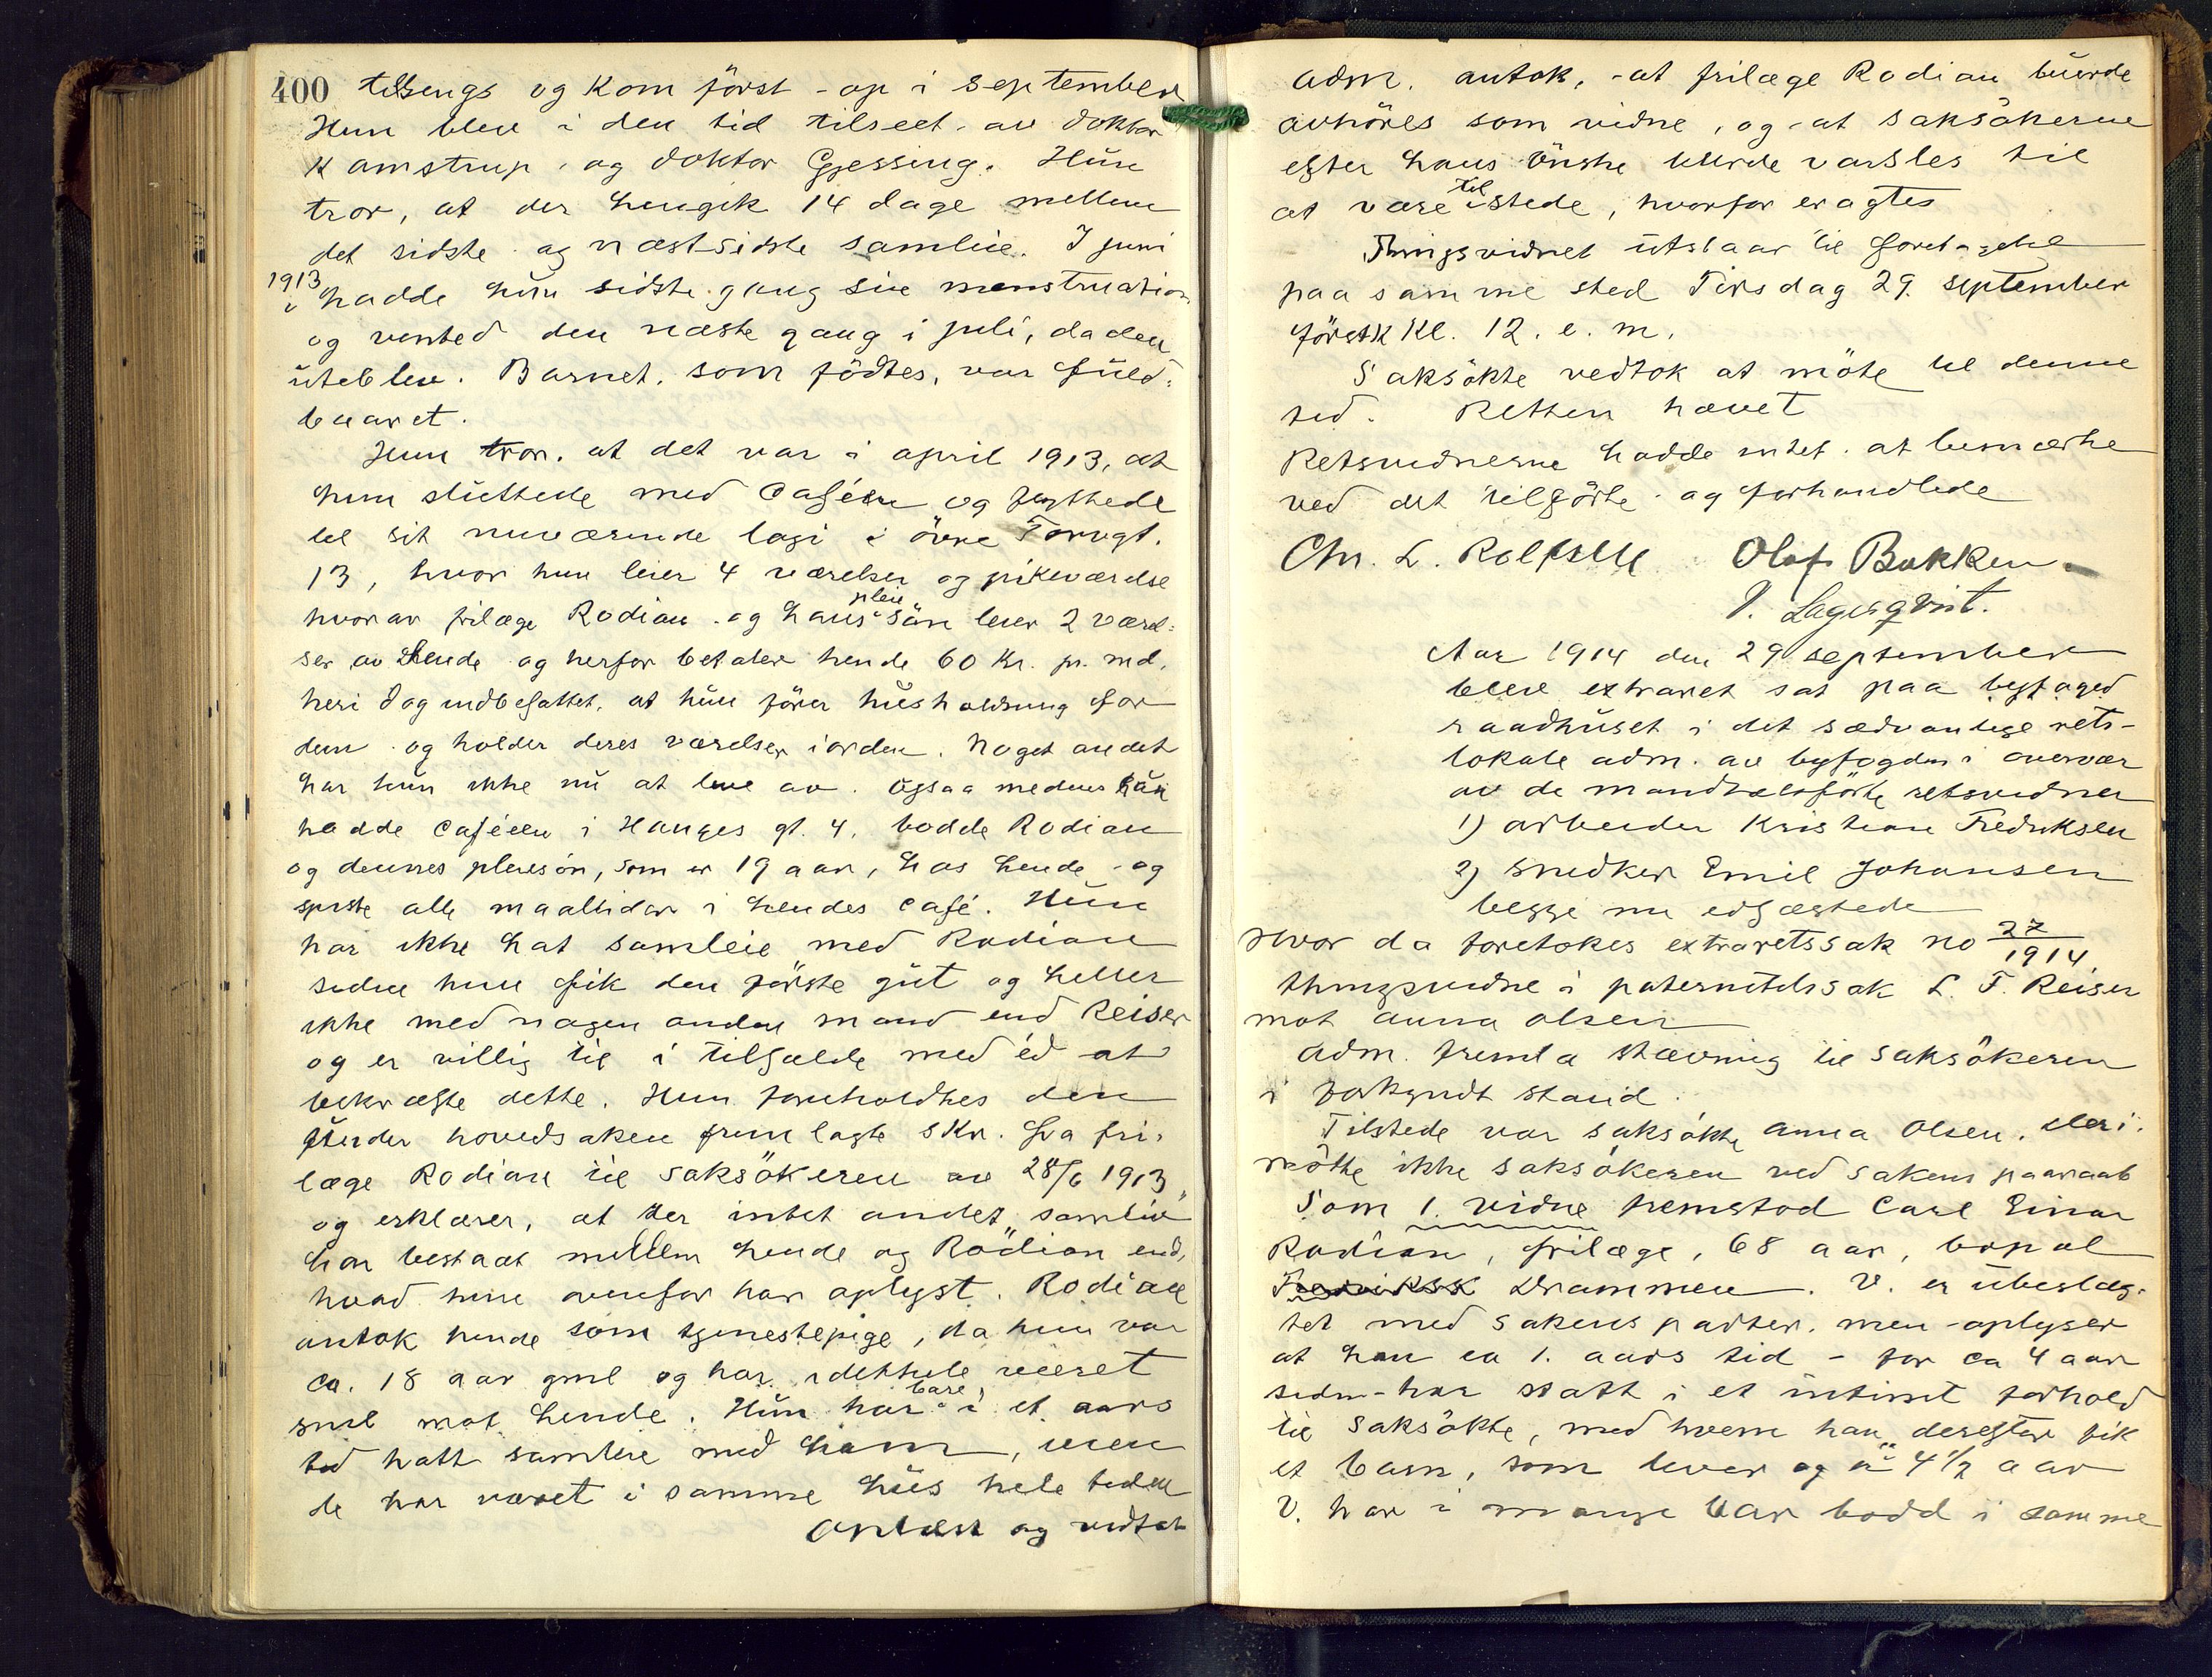 400 tilsengs og kom først op i september
Hun blev i den tid tilseet av doktor
Kamstrup og doktor Gjessing. Hun
tror, at der hengik 14 dage mellem
det sidste og næstsidste samleie. I juni
1913
hadde hun sidste gang sin menstruation
og ventet den næste gang i juli, da den
uteblev. Barnet, som fødtes, var fuld-
baaret.
Hun tror, at det var i april 1913, at
hun sluttede med caféen og flyttede
til sit nuværende logi i øvre Torvgt.
13, hvor hun leier 4 værelser og pikeværelse
hvorav frilæge Rodian og hans pleie søn leier 2 værel-
ser av hende og herfor betaler hende 60 Kr. pr. md.
heri dog indbefattet, at hun fører husholdning for
dem og holder deres værelser i orden. Noget andet
har hun ikke nu at leve av. Ogsaa medens hun
hadde caféen i Hauges gt. 4, bodde Rodian
og dennes pleiesøn, som er 19 aar, hos hende og
spiste alle maaltider i hendes café. Hun
har ikke hat samleie med Rodian
siden hun fik den første gut og heller
ikke med nogen anden mand end Reiser
og er villig til i tilfælde med ed at
bekræfte dette. Hun foreholdtes den
under hovedsaken fremlagte skr. fra fri-
læge Rodian til saksökeren av 28/6 1913,
og erklærer, at der intet andet "samliv"
har bestaat mellem hende og Rodian end,
hvad hun ovenfor har oplyst. Rodian
antok hende som tjenestepige, da hun var
ca. 18 aar gml og har i dethele været
snil mot hende. Hun har bare i et aars
tid hatt samleie med ham, men
de har været i samme hus hele tiden
Oplæst og vedtat
Adm. antok, at frilæge Rodian burde
avhöres som vidne, og at saksökerne
efter hans önske burde varsles til
at være til stede, hvorfor eragtes
Thingsvidnet utstaar til foretagelse
paa samme sted Tirsdag 29. september
förstk Kl. 12. e. m.
Saksökte vedtok at möte til denne
tid. Retten hævet
Retsvidnerne hadde intet at bemærke
ved det tilförte og forhandlede
Chr. L. Rolfsen Olaf Bakken
V. Lagerqvist.
Aar 1914 den 29 september
blev extraret sat paa byfoged
raadhuset i det sædvanlige rets-
lokale adm. av byfogden i overvær
av de mandtalsførte retsvidner
1) arbeider Kristian Fredriksen
2) snedker Emil Johansen
begge nu edfæstede
Hvor da foretokes extraretssak no 27/1914
thingsvidne i paternitetssak L. F. Reiser
mot Anna Olsen
Adm. fremla stævning til saksökeren
i forkyndt stand.
Tilstede var saksökte Anna Olsen. Deri-
mötte ikke saksökeren ved sakens paaraab
Som 1. vidne fremstod Carl Einar
Rodian, frilæge, 68 aar, bopæl
Drammen. V. er ubeslæg-
tet med sakens parter, men oplyser
at han ca 1. aars tid - for ca 4 aar
siden - har staatt i et intimt forhold
til saksökte, med hvem han derefter fik
et barn, som lever og er 4 1/2 aar
V. har i mange aar bodd i samme